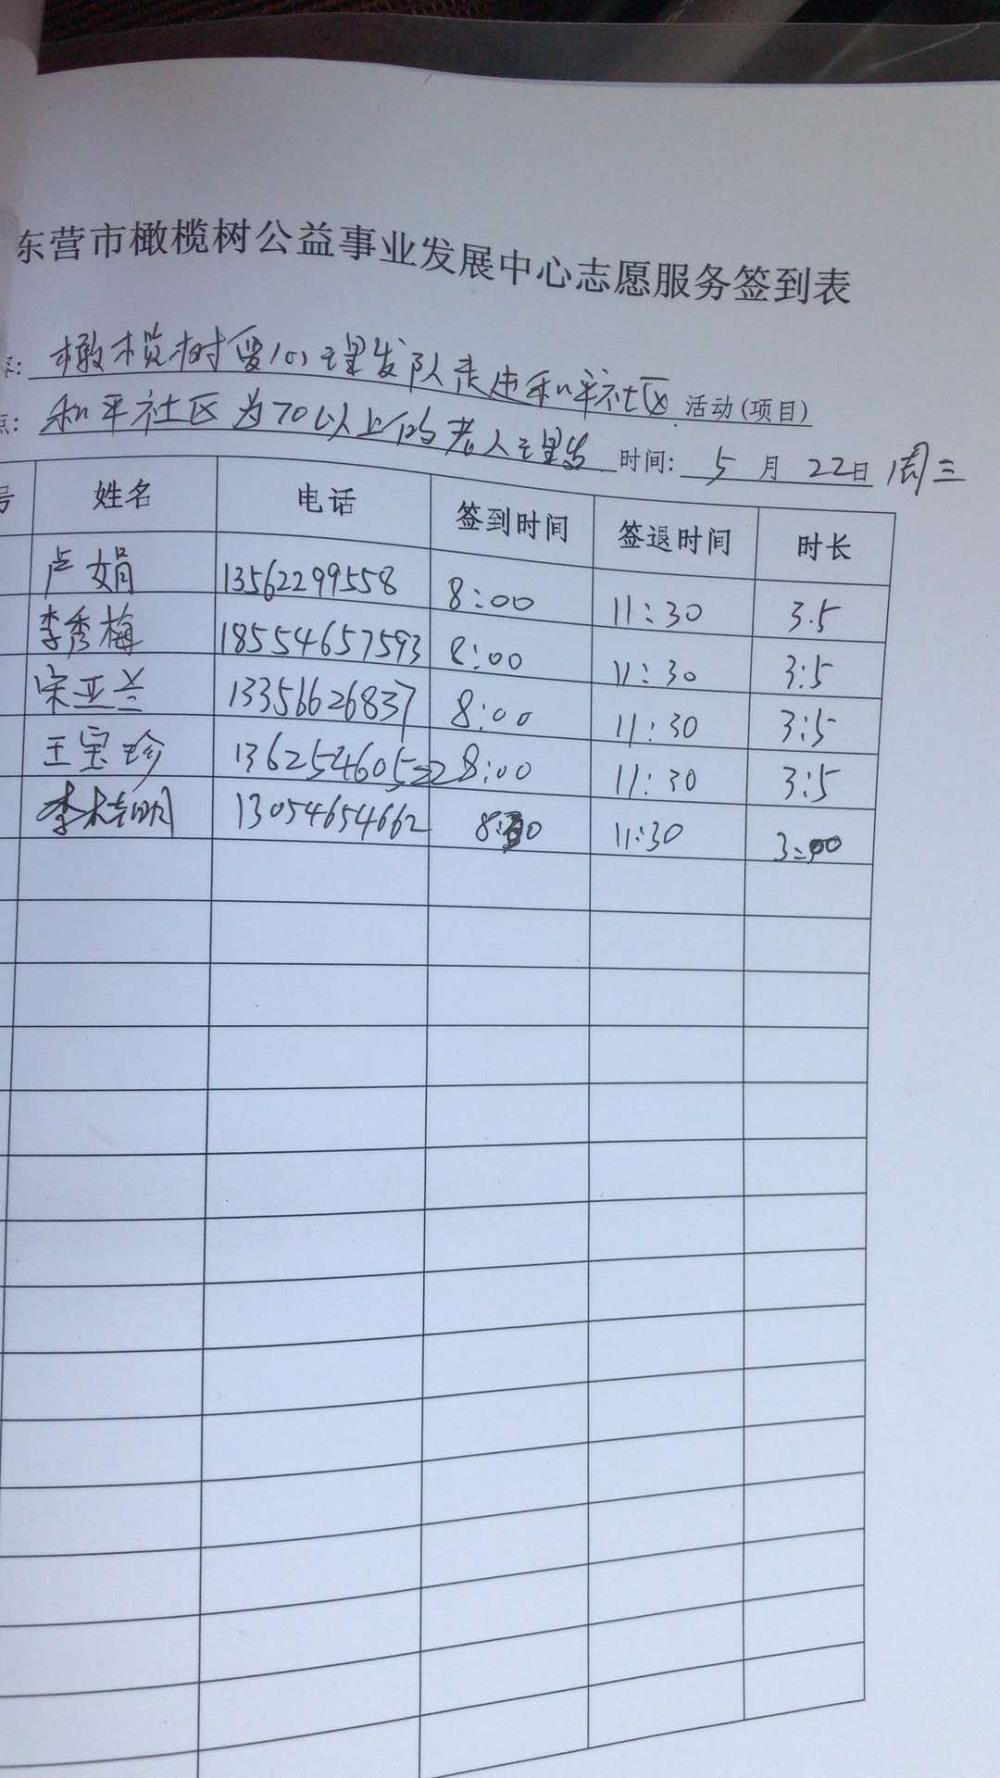 东营市橄榄树公益事业发展中心志愿服务签到表
称: 橄榄树爱心理发队走进和平社区 活动(项目)
点: 和平社区为70以上的老人理发 时间: 5 月 22日 周三
号 姓名 电话 签到时间 签退时间 时长
卢娟 13562299558 8:00 11:30 3.5
李秀梅 18554657593 8:00 11:30 3:5
宋亚兰 13356626837 8:00 11:30 3:5
王宝珍 13625460522 8:00 11:30 3:5
13054654662 8:30 11:30 3:00